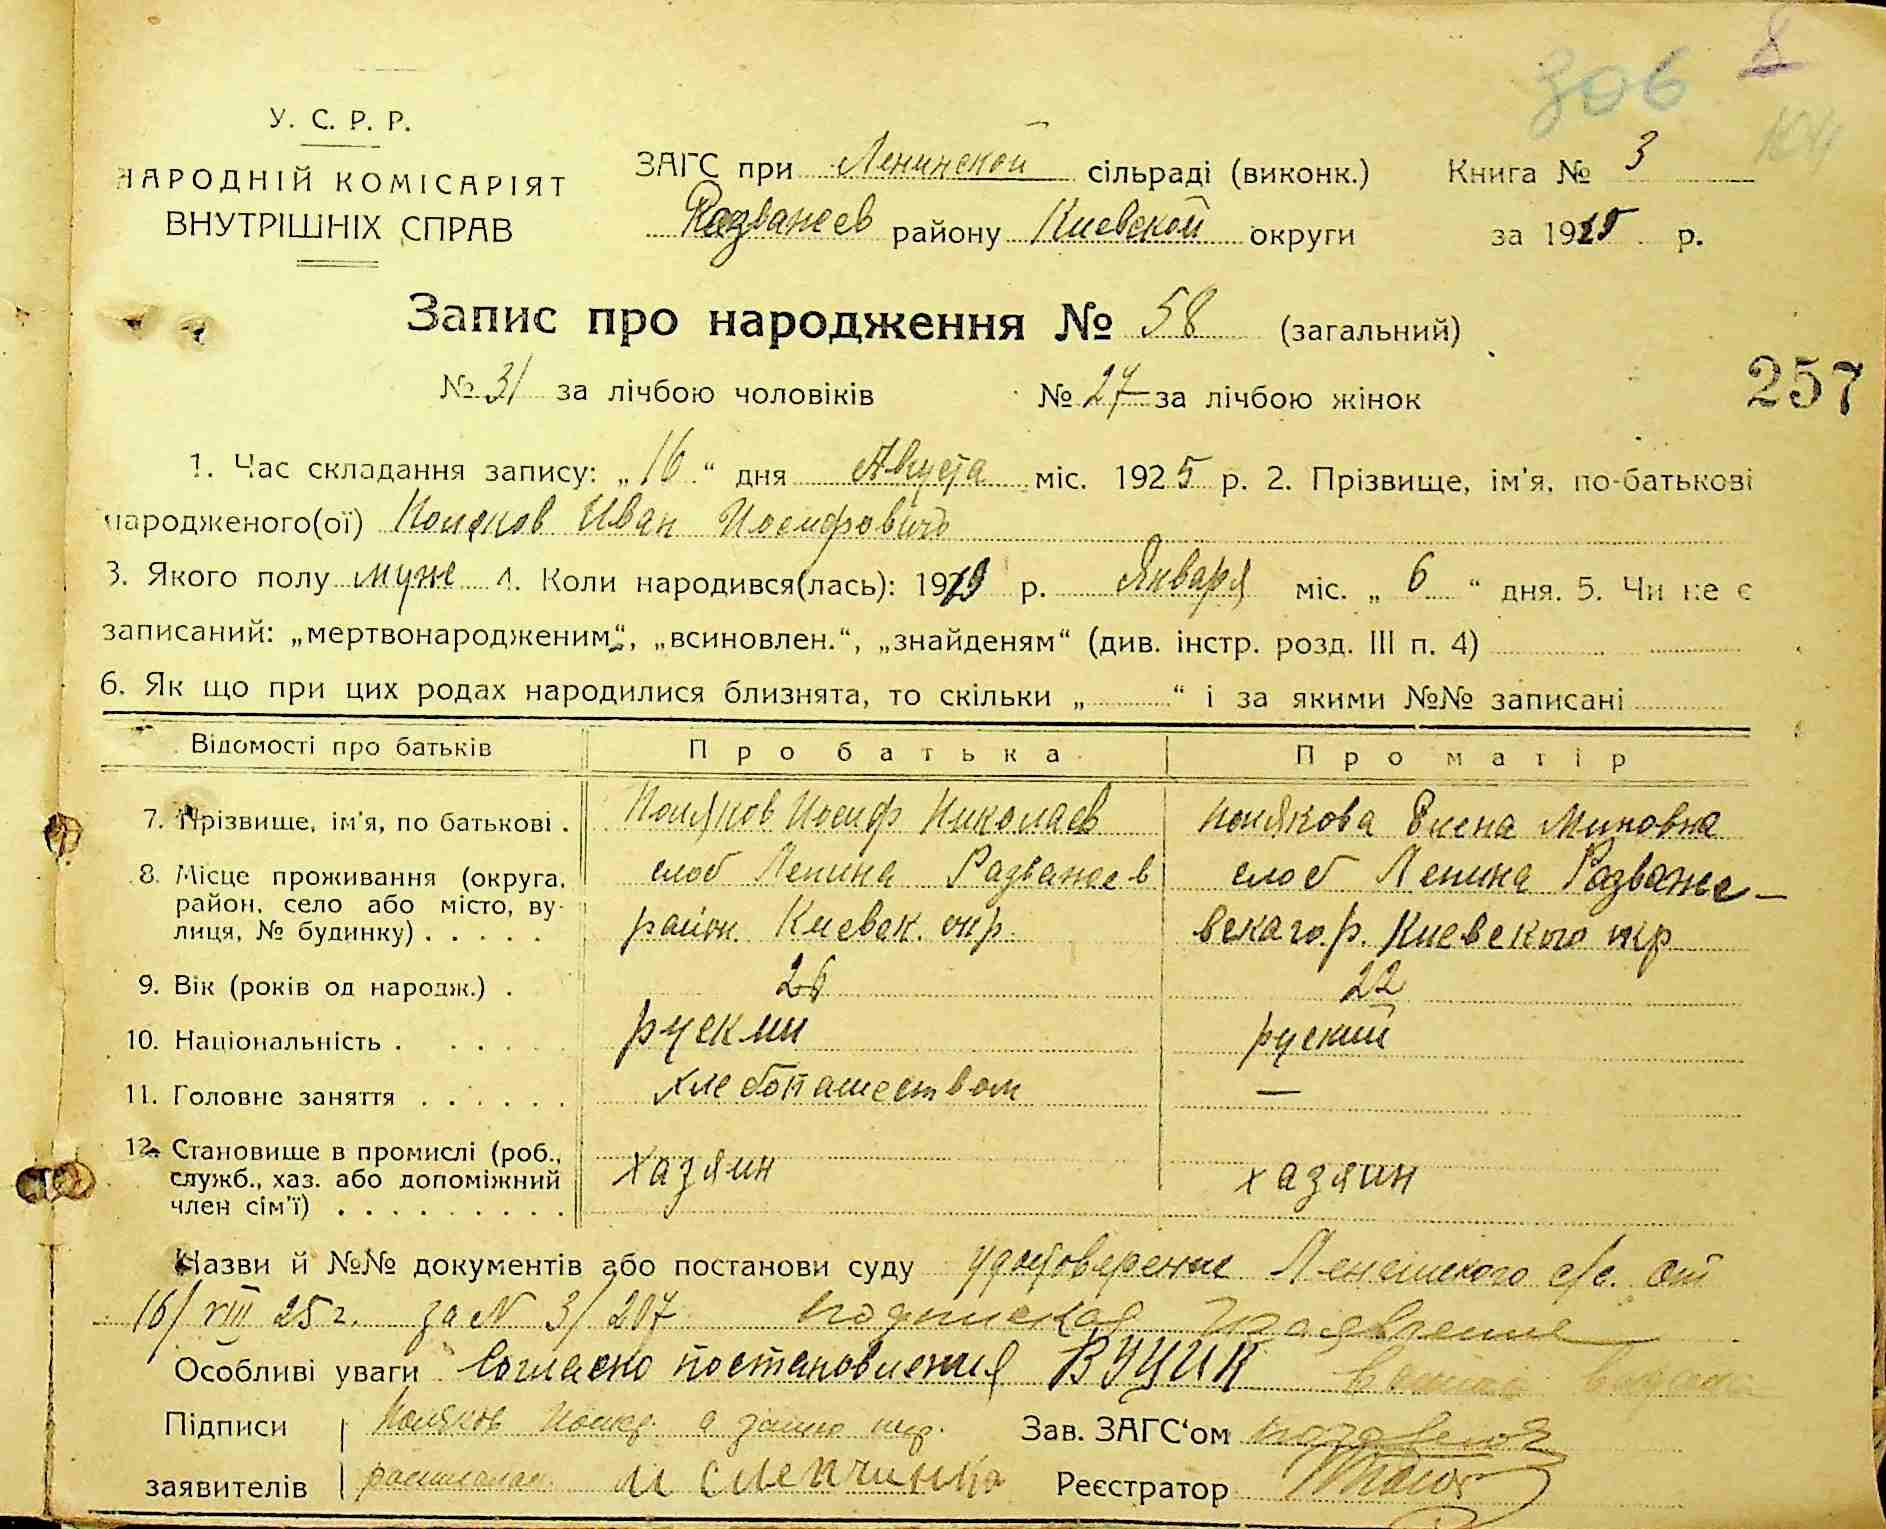 306 8
У. С. Р. Р.
НАРОДНІЙ КОМІСАРІЯТ
ВНУТРІШНІХ СПРАВ
ЗАГС при Ленинской сільраді (виконк.) Книга № 3
Розважев району Киевской округи за 1925 р.
Запис про народження № 58 (загальний)
№ 31 за лічбою чоловіків № 27 за лічбою жінок
257
1. Час складання запису: „16“ дня Августа міс. 1925 р. 2. Прізвище, ім'я, по-батькові
народженого(ої) Поляков Иван Иосифович
3. Якого полу муже 4. Коли народився(лась): 1919 р. Января міс. „6“ дня. 5. Чи не є
записаний: „мертвонародженим“, „всиновлен.“, „знайденям“ (див. інстр. розд. III п. 4)
6. Як що при цих родах народилися близнята, то скільки „ “ і за якими №№ записані
Відомості про батьків Про батька Про матір
7. Прізвище, ім'я, по батькові . Поляков Иосиф Николаев Полякова Елена Миновна
8. Місце проживання (округа, район, село або місто, вулиця, № будинку) . . . . .
слоб Ленина Розважев
район. Киевск. окр.
слоб Ленина Розваже-
вскаго.р. Киевского окр
9. Вік (років од народж.) . 26 22
10. Національність . . . . . руский руский
11. Головне заняття . . . . . . хлебопашеством —
12. Становище в промислі (роб., служб., хаз. або допоміжний член сім'ї) . . . . . . . . .
хазяин хазяин
Назви й №№ документів або постанови суду удостоверение Ленинского с/с. от
16/VIII 25 г. за N 3/207 подписка заявление
Особливі уваги Согласно постановления ВУЦИК
Підписи Поляков а за него нег.
заявителів расписался М Слепчинка
Зав. ЗАГС'ом
Реєстратор